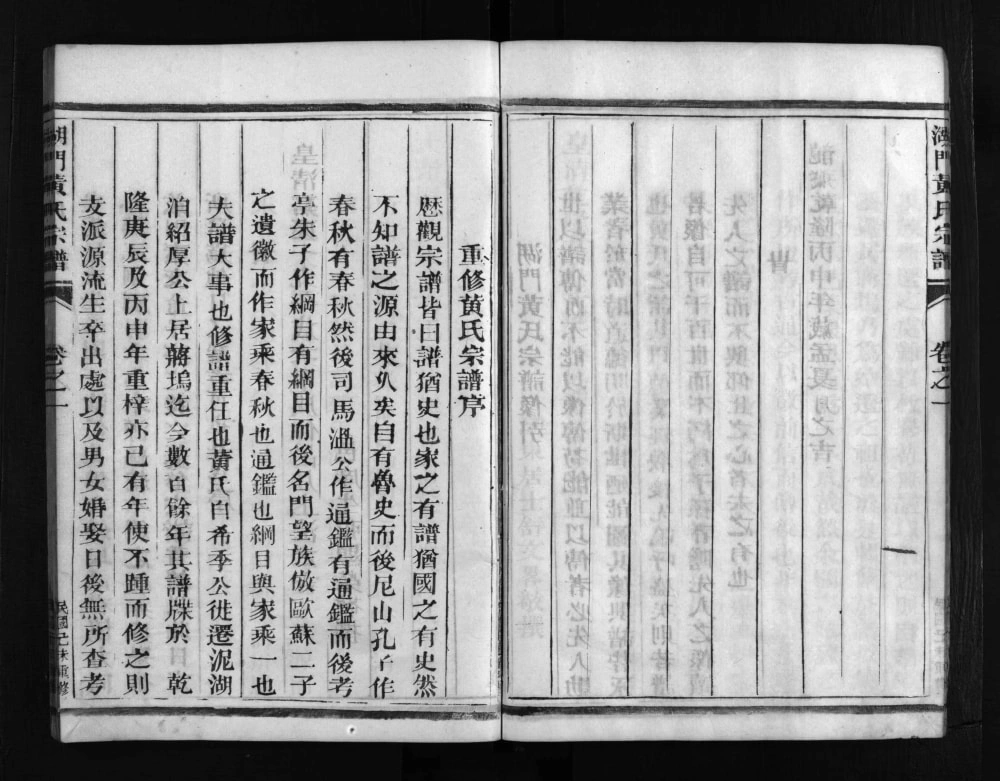 湖門黃氏宗譜
卷之一
重修黃氏宗譜序
歷觀宗譜皆曰譜猶史也家之有譜猶國之有史然
不知譜之源由來久矣自有魯史而後尼山孔子作
春秋有春秋然後司馬溫公作通鑑有通鑑而後考
亭朱子作綱目有綱目而後名門望族倣歐蘇二子
之遺徽而作家乘春秋也通鑑也綱目與家乘一也
夫譜大事也修譜重任也黃氏自希季公徙遷泥湖
洎紹厚公上居蔣塢迄今數百餘年其譜牒於乾
隆庚辰及丙申年重梓亦已有年使不踵而修之則
支派源流生卒出處以及男女婚娶日後無所查考
湖門黃氏宗譜
卷之一
民國己未重修